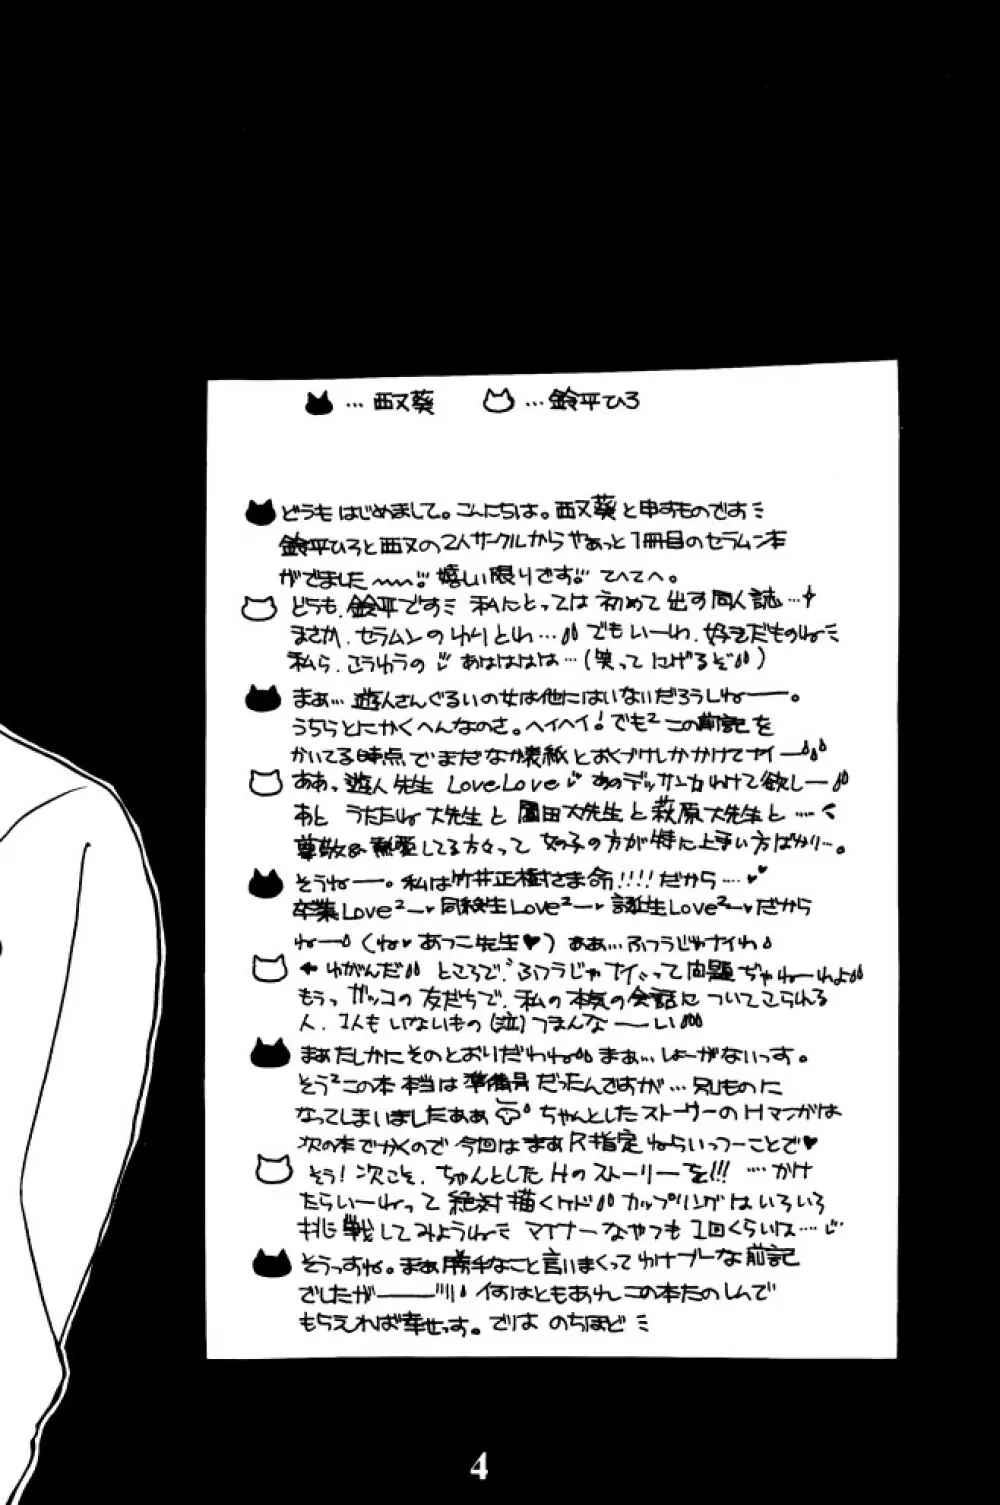 …西又葵 …鈴平ひろ
どうもはじめまして。こんにちは。西又葵と申すものです
鈴平ひろと西又の2人サークルからやぁっと1冊目のセラムン本
がでました〜〜!! 嬉しい限りです!! てへてへ。
どうも、鈴平です 私にとっては初めて出す同人誌…
まさか、セラムンのやりとわ… でもいーわ、好きだものね
私ら、こうゆうの あはははは…(笑ってにげるぞ)
まぁ…遊人さんぐるいの女は他にはいないだろうしねー。
うちらとにかくへんなのさ。ヘイヘイ! でも²この前記を
かいてる時点でまだなか表紙とおくづけしかかけてナイー
ああっ遊人先生 LoveLove あのデッサン力わけて欲しー
あと うたたね大先生と園田大先生と萩原大先生と……
尊敬&熱愛してる方々って女の子の方が特に上手い方ばかり…。
そうねー。私は竹井正樹さま命!!!!だから…♥♥
卒業Love²ー♥同級生Love²ー♥誕生Love²ー♥だから
ねー(ね♥あつこ先生♥)ああ…ふつうじゃナイわ
←ゆがんだ ところで、ふつうじゃナイって問題ぢゃねーわよ
もうっガッコの友だちで、私の本気の会話についてこられる
人、1人もいないもの(泣)つまんなーい
まぁたしかにそのとおりだわね まぁ…しょーがないっす。
そう²この本本当は準備号だったんですが…別ものに
なってしまいましたああ ちゃんとしたストーリーのHマンガは
次の本でかくので今回はまぁR指定ねらいっつーことで♥
そう!次こそ、ちゃんとしたHのストーリーを!!! …かけ
たらいーねって絶対描くケド カップリングはいろいろ
挑戦してみようね マイナーなやつも1回くらいは…
そうっすね。まぁ勝手なこと言いまくってわけブーな前記
でしたがー 何はともあれこの本たのしんで
もらえれば幸せっす。では のちほど
4